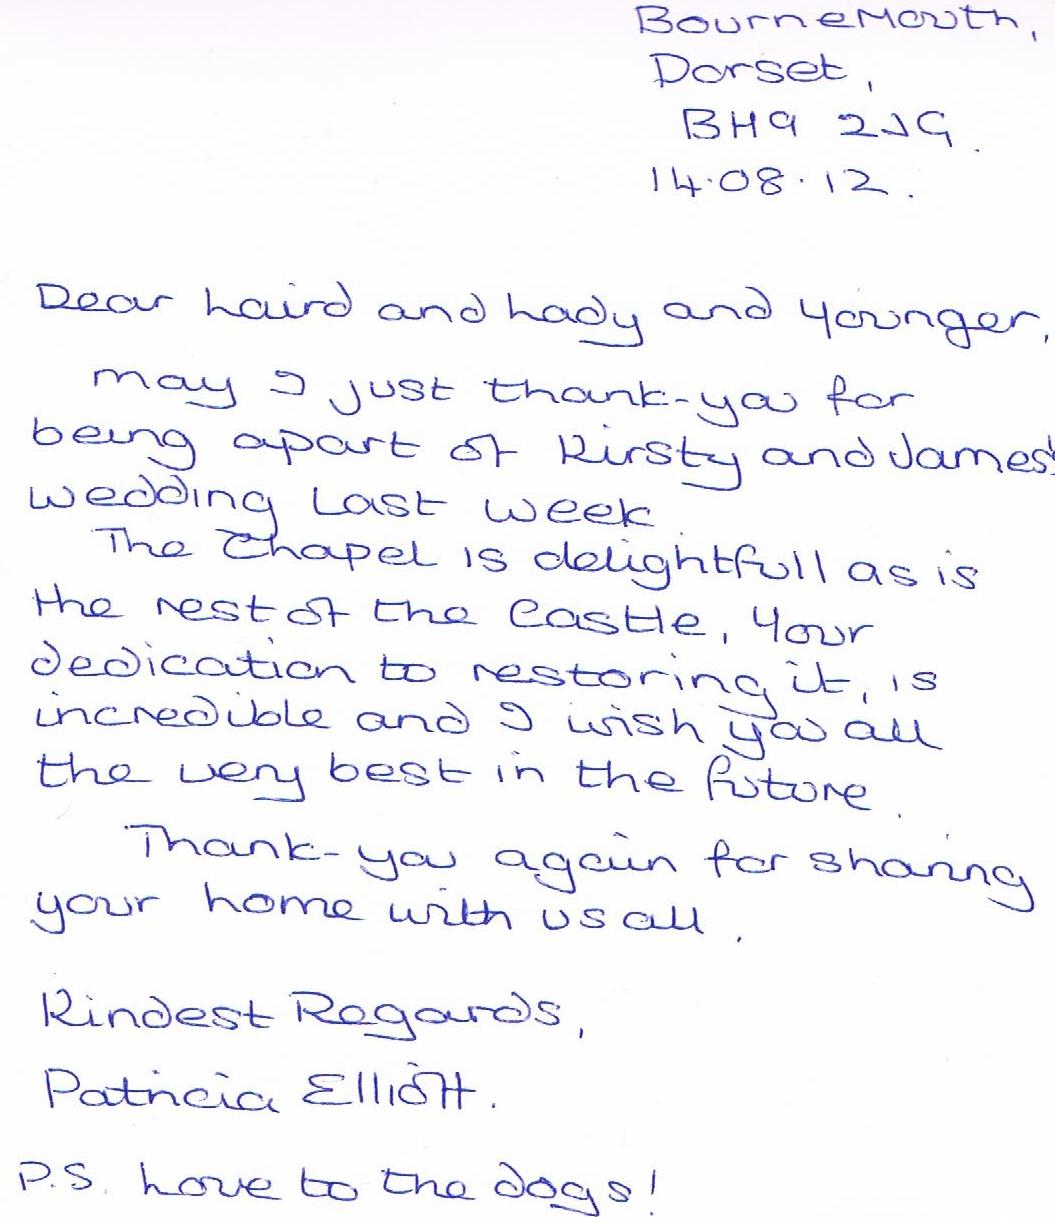 Bournemouth,
Dorset,
BH9 2JG.
14.08.12.
Dear Laird and Lady and Younger,
may I just thank-you for
being apart of Kirsty and James'
wedding last week.
The Chapel is delightfull as is
the rest of the Castle, Your
dedication to restoring it, is
incredible and I wish you all
the very best in the future.
Thank-you again for sharing
your home with us all.
Kindest Regards,
Patricia Elliott.
P.S. Love to the dogs!